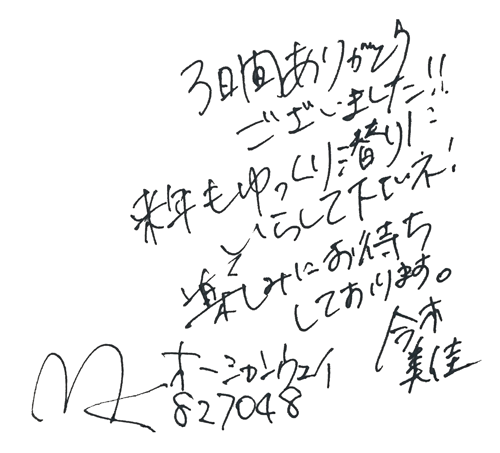 3日間ありがとう
ございました!!
来年もゆっくり潜りに
いらして下さいネ!
楽しみにお待ち
しております。
今木
美佳
オーシャンウェイ
827048